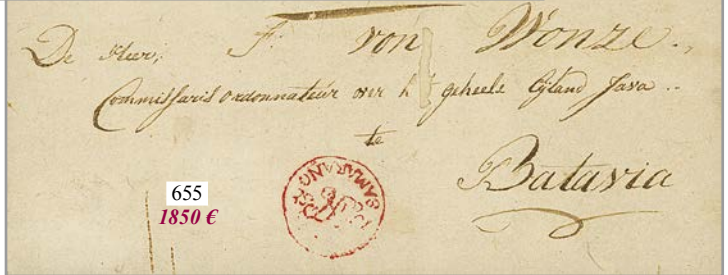 De Heer, F. von Wonze.,
Commissaris ordonnateur over h't geheele Eyland Java..
te
Batavia
SAMARANG
655
1850 €